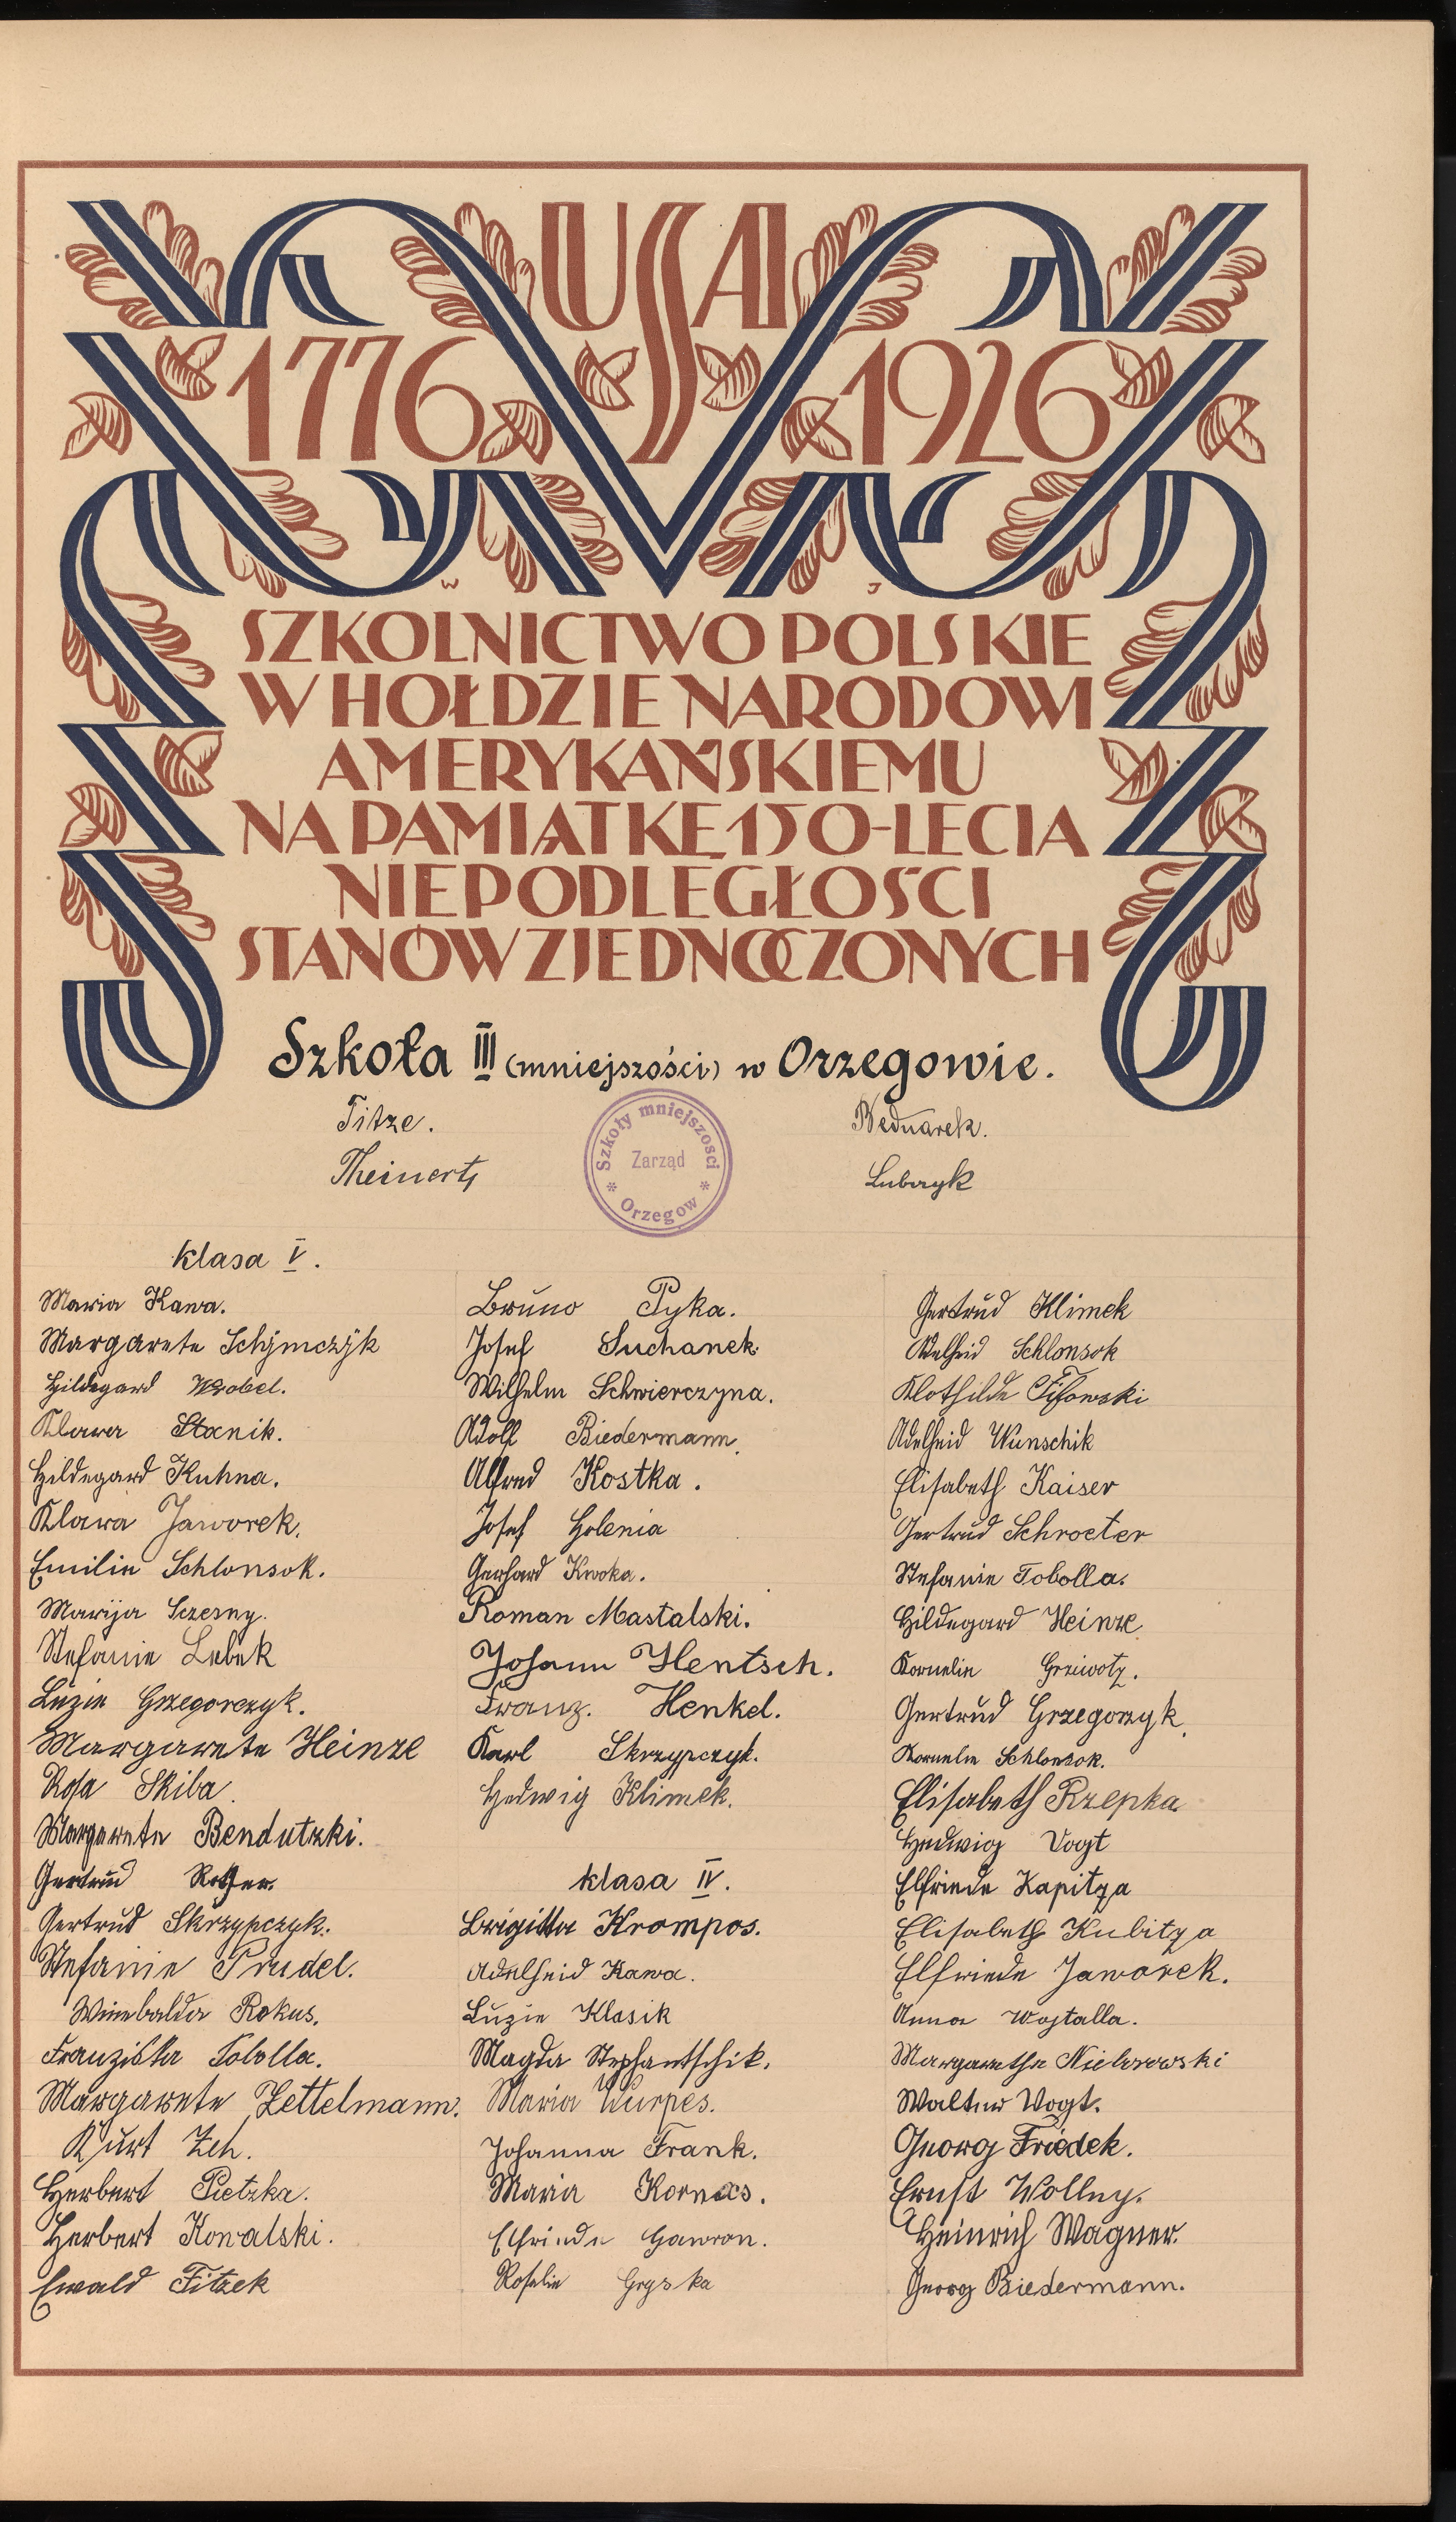 USA
1776 1926
W J
SZKOLNICTWO POLSKIE
W HOŁDZIE NARODOWI
AMERYKAŃSKIEMU
NA PAMIĄTKĘ 150-LECIA
NIEPODLEGŁOŚCI
STANÓW ZJEDNOCZONYCH
Szkoła III (mniejszości) w Orzegowie.
Titze.
Theinert
Szkoły mniejszosci
Zarząd
Orzegow
Bednarek.
Lubczyk
klasa V.
Maria Kawa.
Margarete Schymczyk
Hildegard Wrobel.
Klara Stanik.
Hildegard Kuhna.
Klara Jaworek.
Emilie Schlonsok.
Marija Sczesny.
Stefanie Lebek
Luzie Grzegorczyk.
Margarete Heinze
Rosa Skiba.
Margarete Bendutzki.
Gertrud Rother.
Gertrud Skrzypczyk.
Stefanie Prudel.
Winebalda Rokus.
Franziska Tobolla.
Margarete Zettelmann.
Kurt Zeh.
Herbert Pietzka.
Herbert Kowalski.
Ewald Fitzek
Bruno Pyka.
Josef Suchanek.
Wilhelm Schwierczyna.
Adolf Biedermann.
Alfred Kostka.
Josef Golenia
Gerhard Kwoka.
Roman Mastalski.
Johann Hentsch.
Franz. Henkel.
Karl Skrzypczyk.
Hedwig Klimek.
klasa IV.
Brigitta Krompos.
Adelheid Kawa.
Luzie Klasik
Magda Stephantschik.
Maria Wurpes.
Johanna Frank.
Maria Kornas.
Elfriede Gawron.
Roselie Gryska
Gertrud Klimek
Adelheid Schlonsok
Klothilde Fifowski
Adelheid Wunschik
Elisabeth Kaiser
Gertrud Schroeter
Stefanie Tobolla.
Hildegard Heinze
Kornelie Grziwotz.
Gertrud Grzegorzyk.
Kornelie Schlonsok.
Elisabeth Rzepka
Hedwig Vogt
Elfriede Kapitza
Elisabeth Kubitza
Elfriede Jaworek.
Anna Wojtalla.
Margarethe Nielarowski
Walter Vogt.
Georg Friedek.
Ernst Wollny.
Heinrich Wagner.
Georg Biedermann.